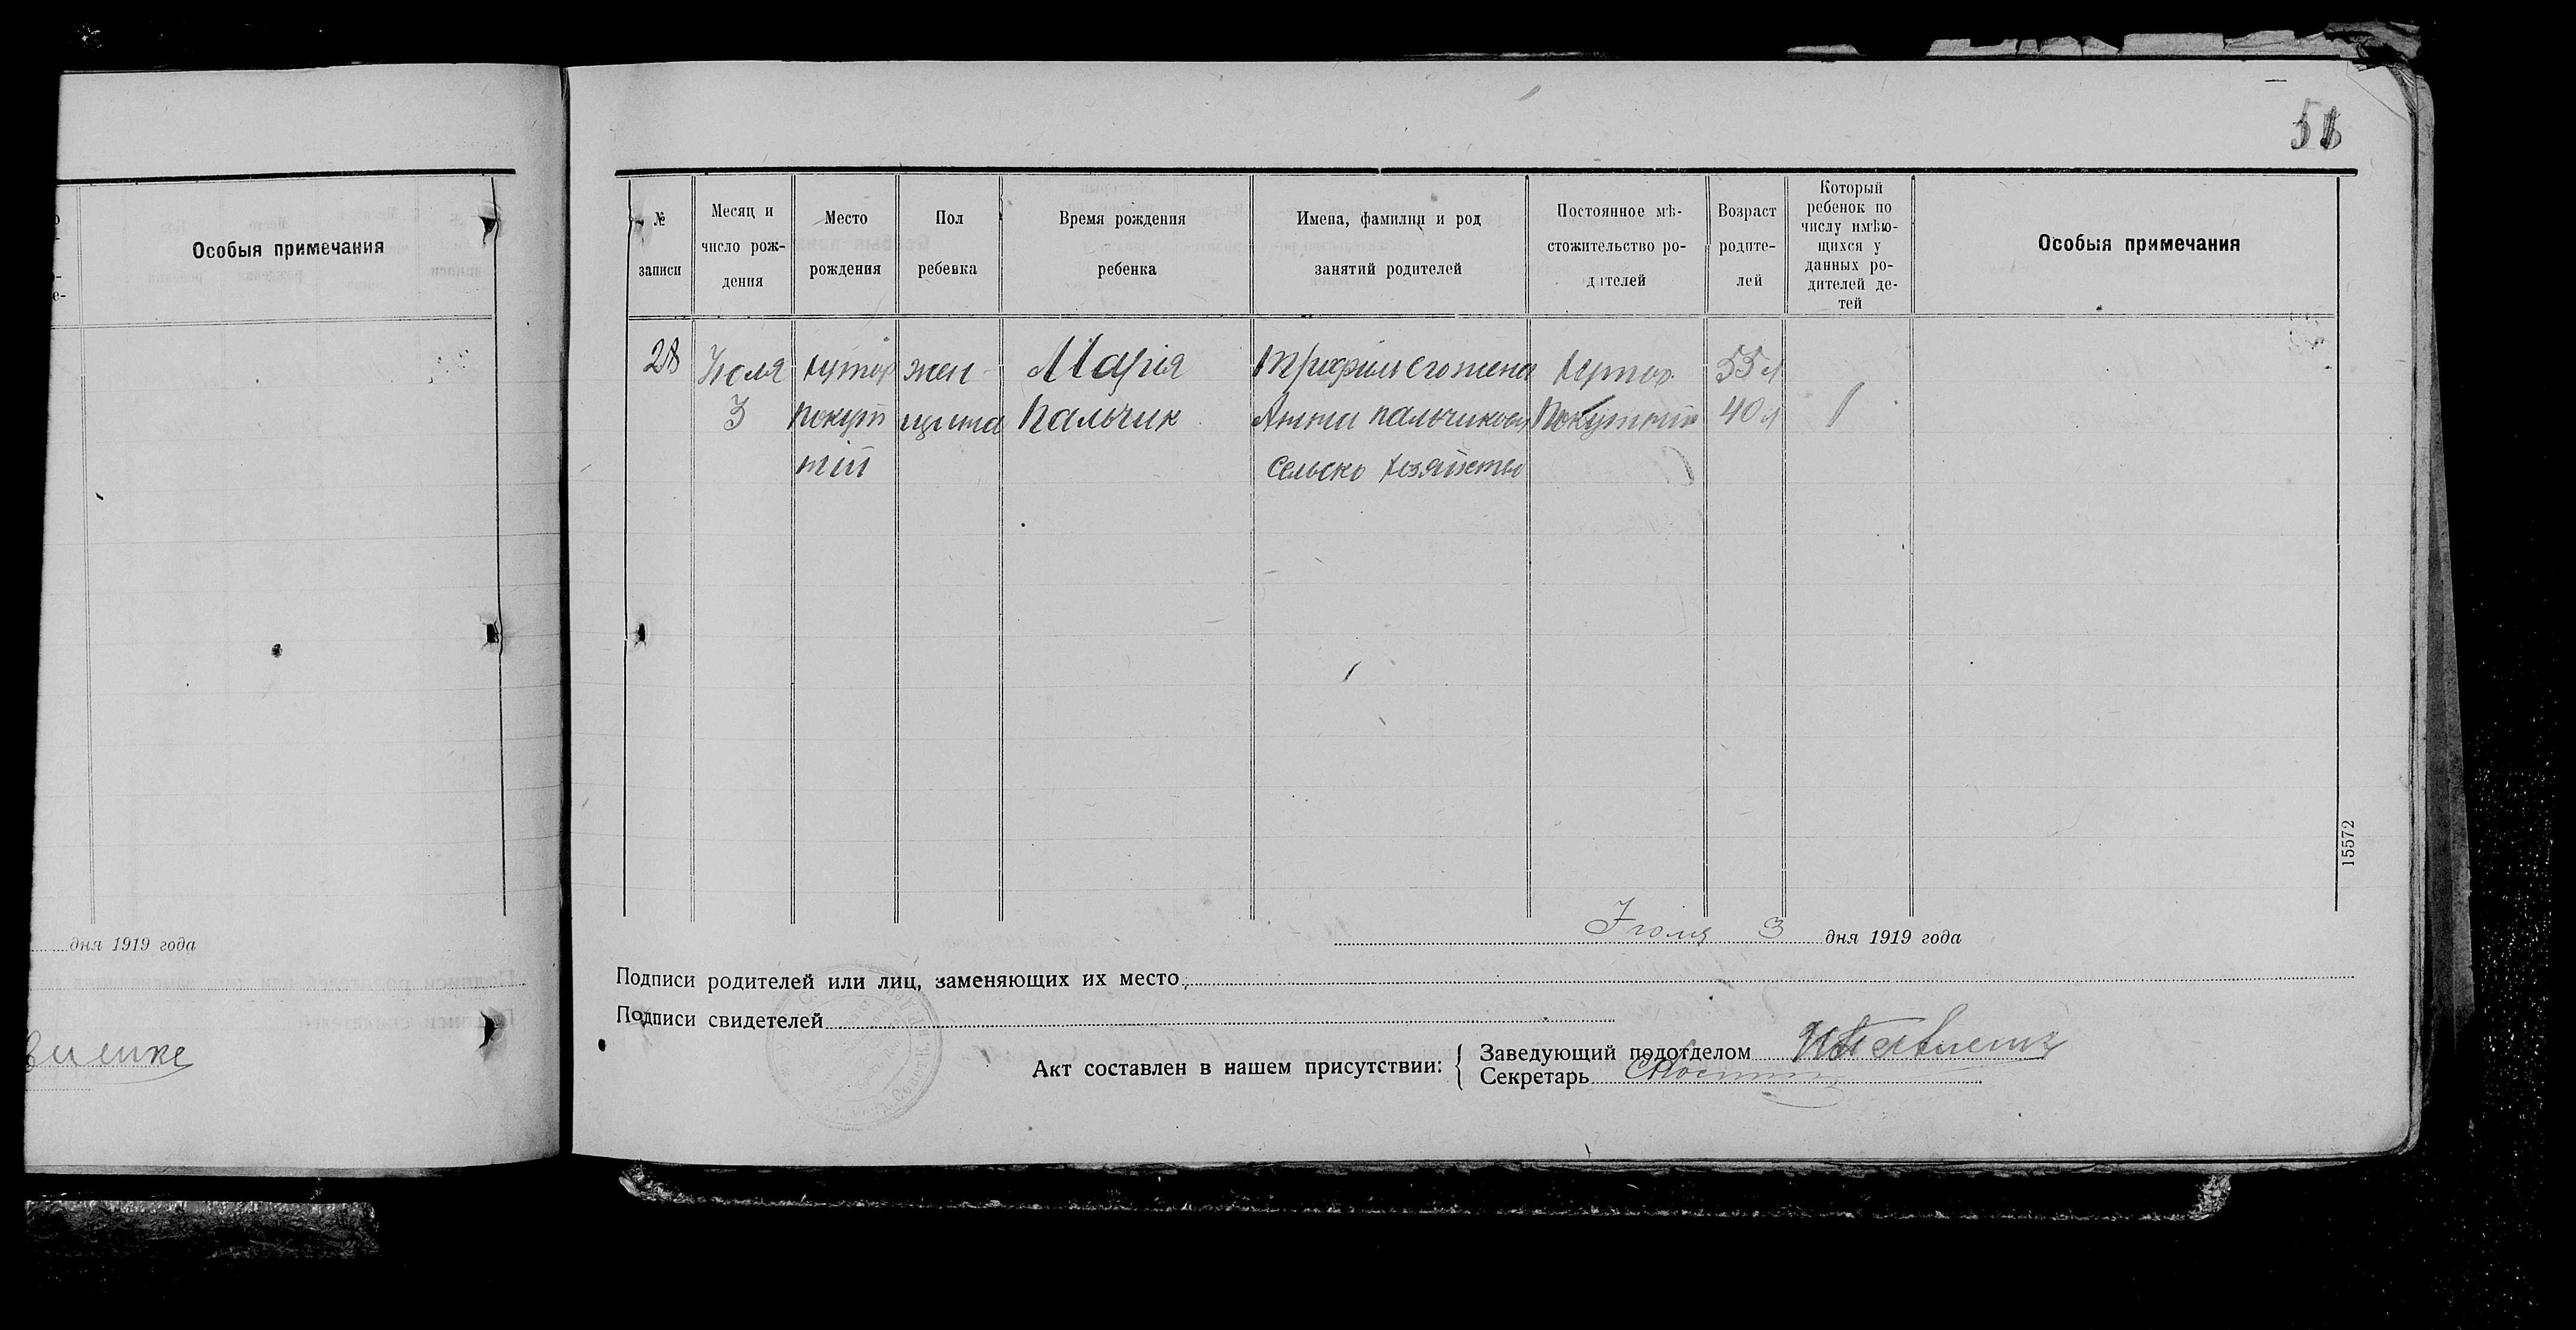 Особыя примечания
дня 1919 года
51
№ записи
Месяц и число рож-дения
Место рождения
Пол ребенка
Время рождения ребенка
Имена, фамилии и род занятий родителей
Постоянное мѣ-стожительство ро-дителей
Возраст родите-лей
Который ребенок по числу имѣю-щихся у данных ро-дителей де-тей
Особыя примечания
28 Июля хутор жен Марія Трифилъ его жена хутор 55 л
3 Покут щина Пальчик Анна Пальчикова 40 л 1
тій сельско хозяйство
15572
Июля 3 дня 1919 года
Подписи родителей или лиц, заменяющих их место
Подписи свидетелей
Акт составлен в нашем присутствии:
Заведующий подотделом
Секретарь